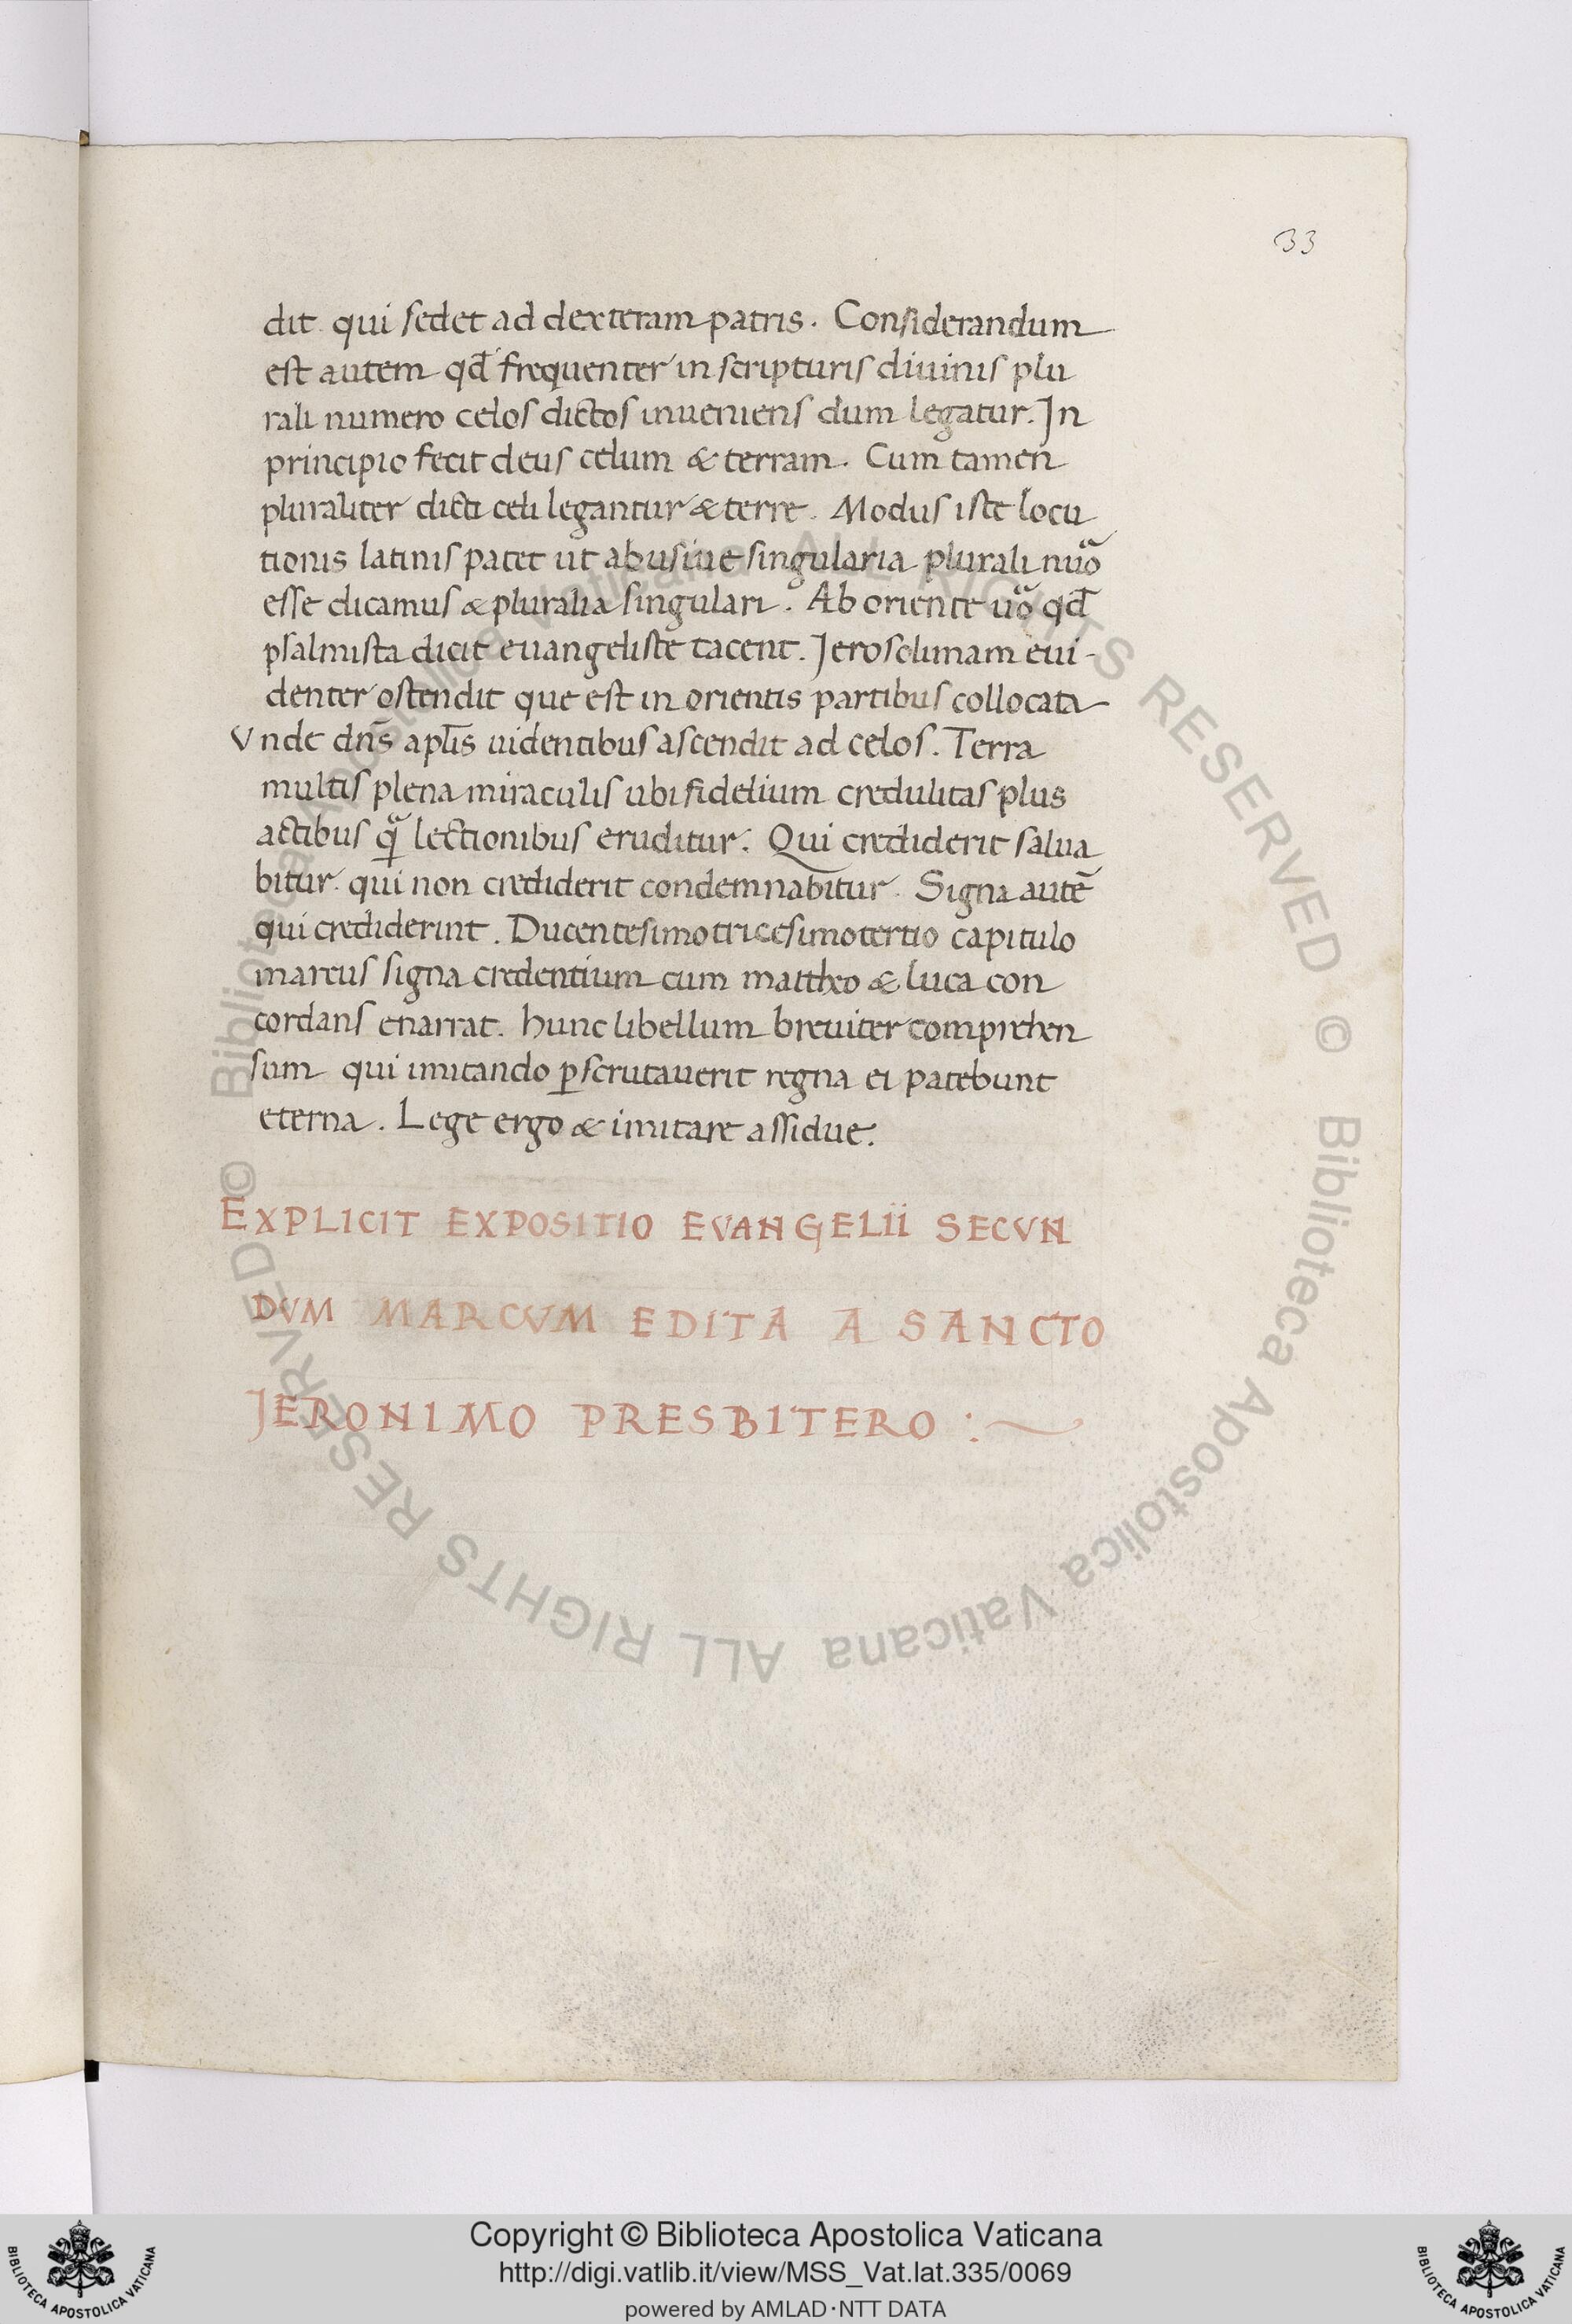 33
dit. qui sedet ad dexteram patris. Considerandum
est autem qd̄ frequenter in scripturis diuinis plu
rali numero celos dictos inueniens dum legatur. In
principio fecit deus celum & terram. Cum tamen
pluraliter dicti celi legantur & terre. Modus iste locu
tionis latinis patet ut abusiue singularia plurali nūo
esse dicamus & pluralia singulari. Ab oriente uo qd̄
psalmista dicit euangeliste tacent. Jerosolimam eui-
denter ostendit que est in orientis partibus collocata
Vnde dn̄s apl̄is uidentibus ascendit ad celos. Terra
multis plena miraculis ubi fidelium credulitas plus
actibus qᵃ lectionibus eruditur. Qui crediderit salua
bitur. qui non crediderit condemnabitur. Signa autē
qui crediderint. Ducentesimotricesimotertio capitulo
marcus signa credentium cum mattheo & luca con
cordans enarrat. hunc libellum breuiter comprehen
sum qui imitando ꝑscrutauerit regna ei patebunt
eterna. Lege ergo & imitare assidue.
EXPLICIT EXPOSITIO EVANGELII SECVN
DVM MARCVM EDITA A SANCTO
JERONIMO PRESBITERO :~
© Biblioteca Apostolica Vaticana ALL RIGHTS RESERVED © Biblioteca Apostolica Vaticana ALL RIGHTS RESERVED
BIBLIOTECA APOSTOLICA VATICANA
Copyright © Biblioteca Apostolica Vaticana
http://digi.vatlib.it/view/MSS_Vat.lat.335/0069
powered by AMLAD·NTT DATA
BIBLIOTECA APOSTOLICA VATICANA